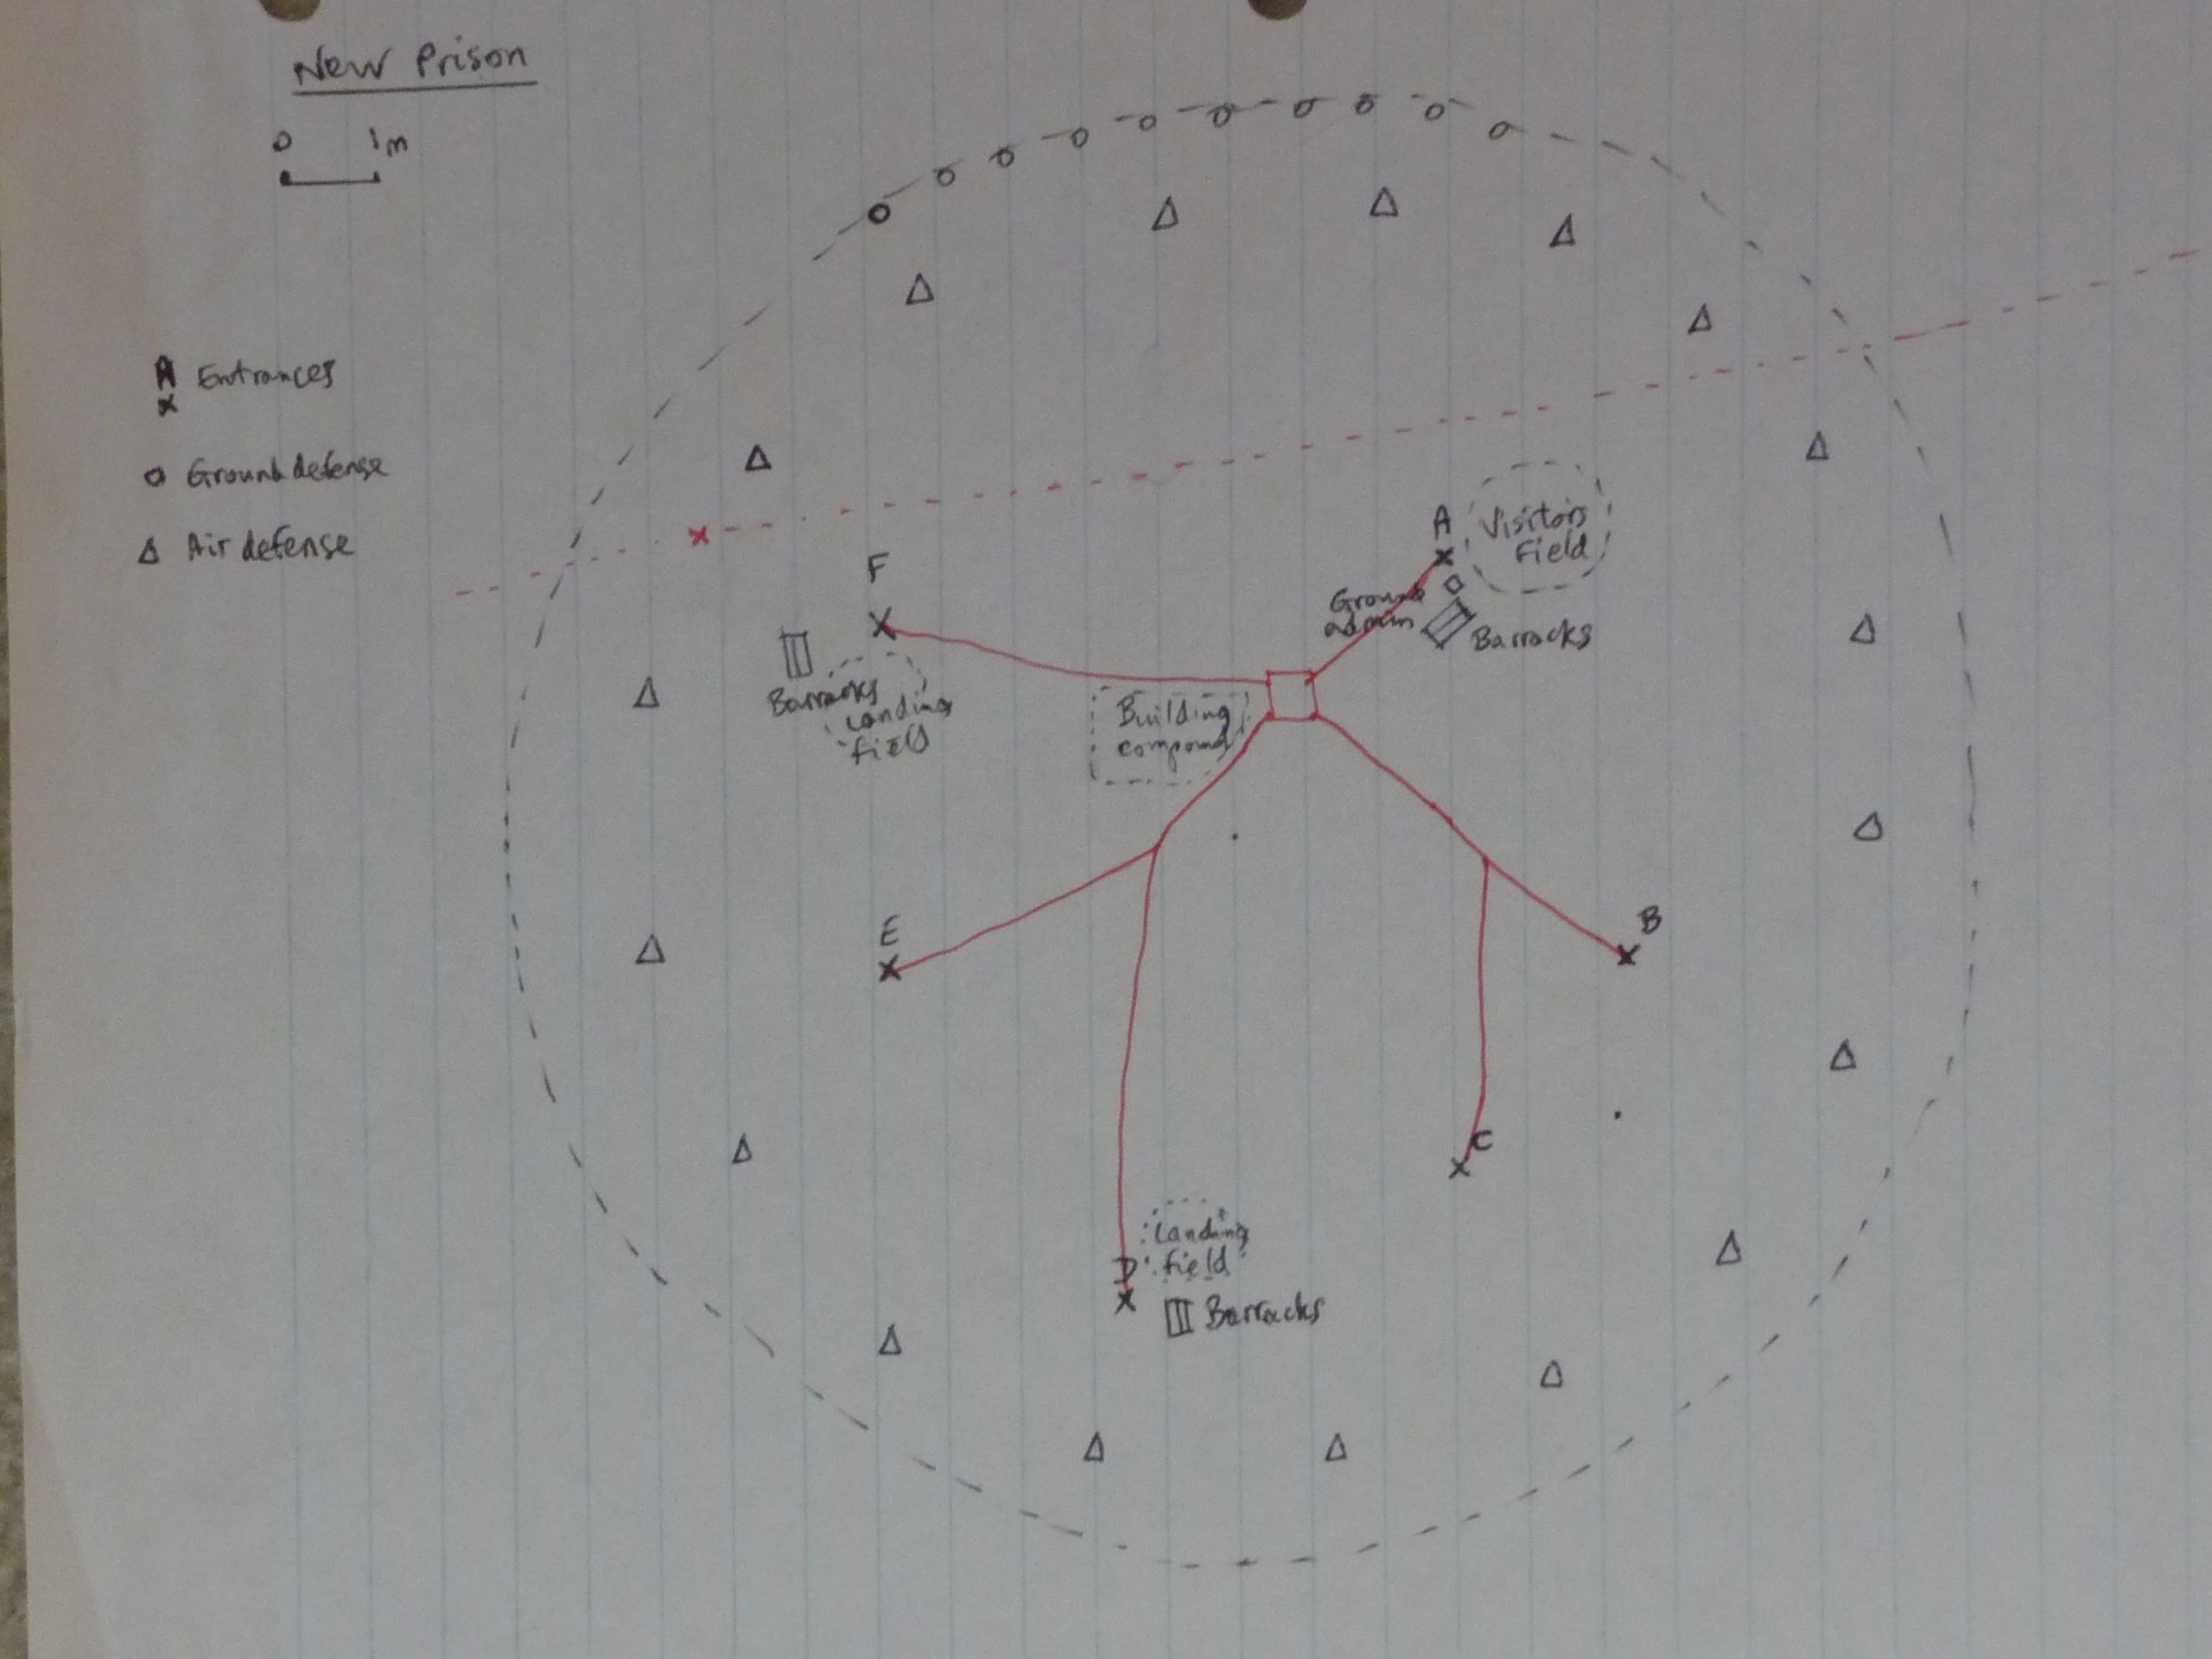 New Prison
0 1m
A Entrances
x
o Ground defense
Δ Air defense
A
Visitors
Field
Ground
admin
Barracks
F
Barracks
Landing
field
Building
compound
E
B
C
Landing
field
D
Barracks